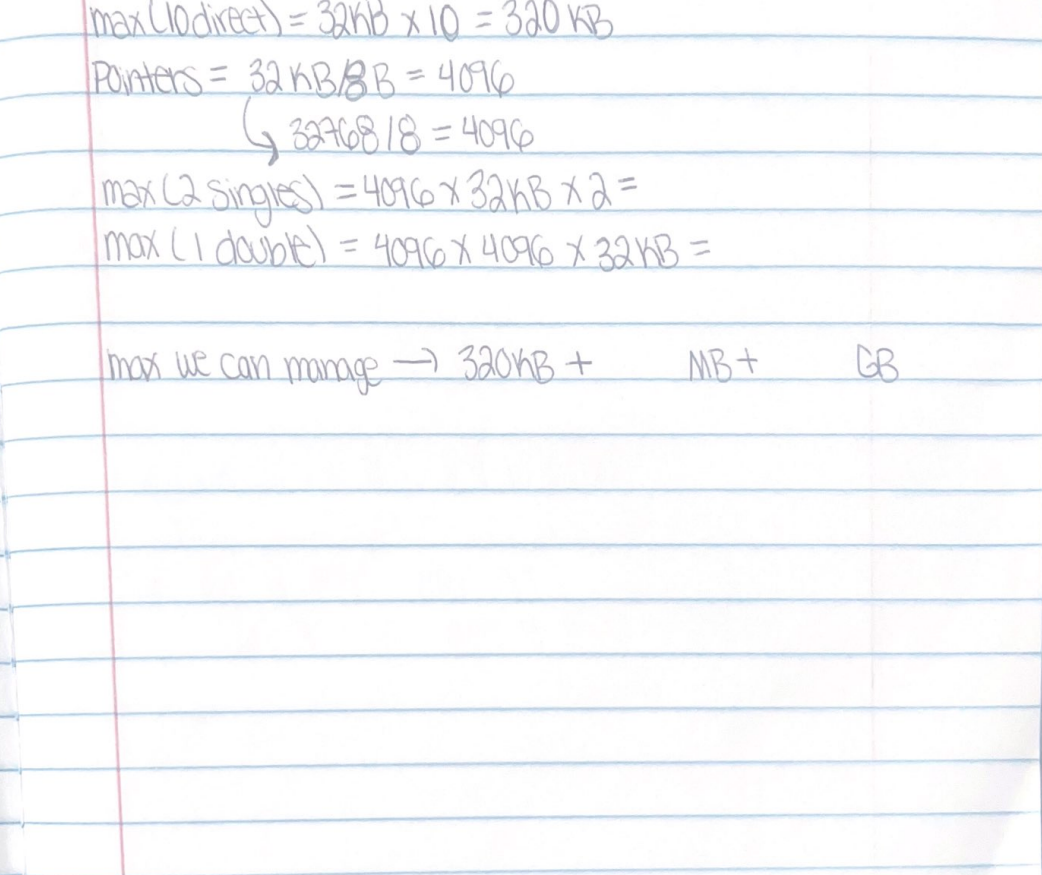 max (10 direct) = 32KB x 10 = 320 KB
Pointers = 32 KB/8B = 4096
32768/8 = 4096
max (2 singles) = 4096 x 32KB x 2 =
max (1 double) = 4096 x 4096 x 32KB =
max we can manage → 320KB + MB + GB